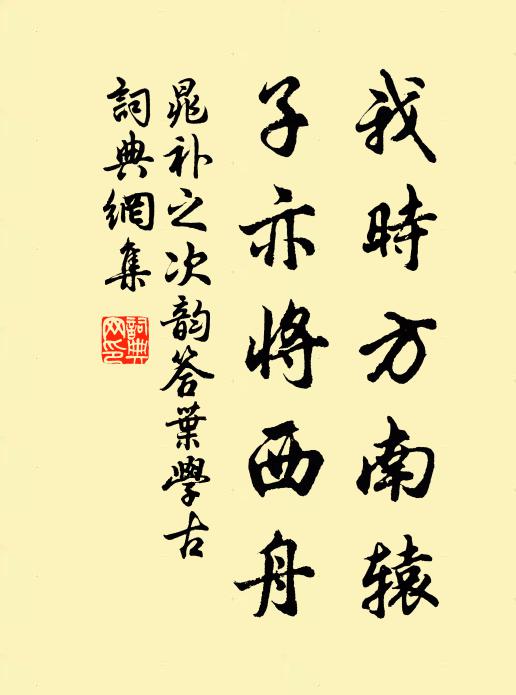 我時方南辕
子亦將西舟
晁补之次韵答葉學古
詞典網集
詞典網印